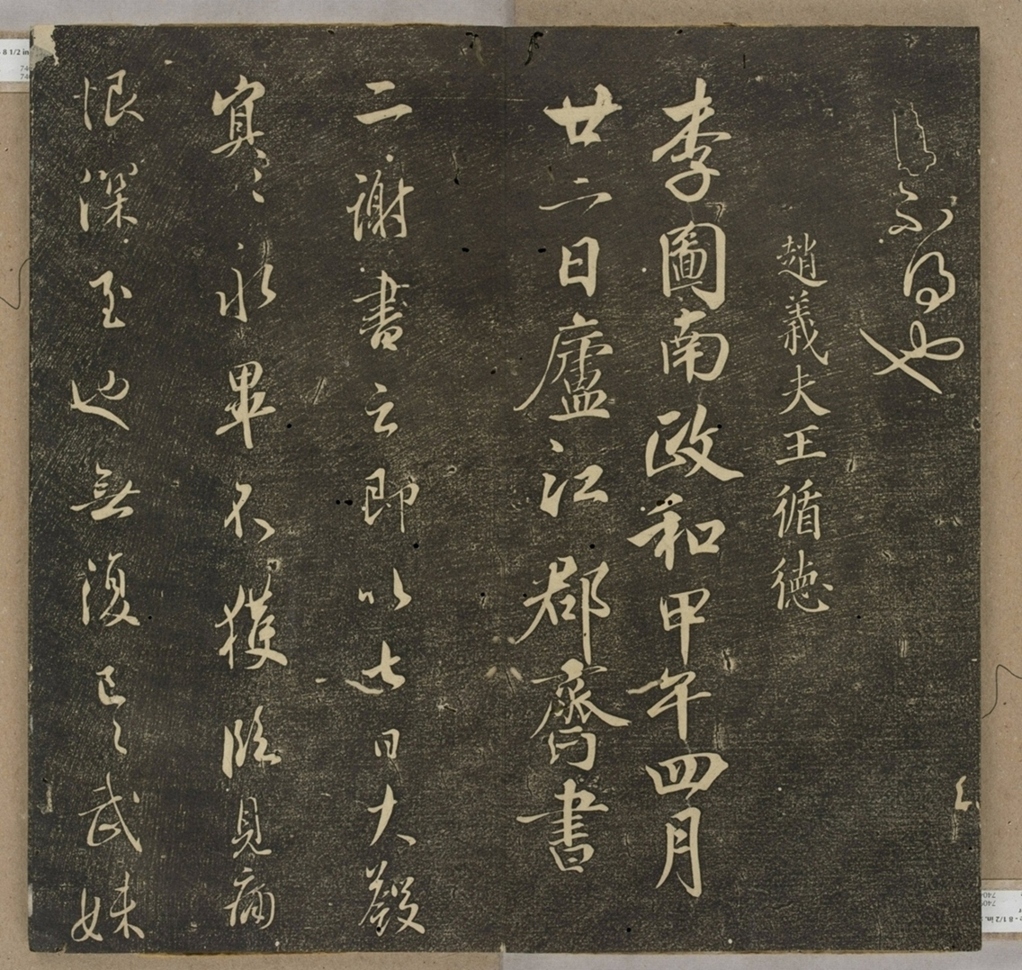 不得也
趙義夫王循德
李圖南政和甲午四月
廿二日廬江郡齋書
二謝書云即以七日大斂
冥冥永畢不獲臨見痛
恨深至也無復已已武妹